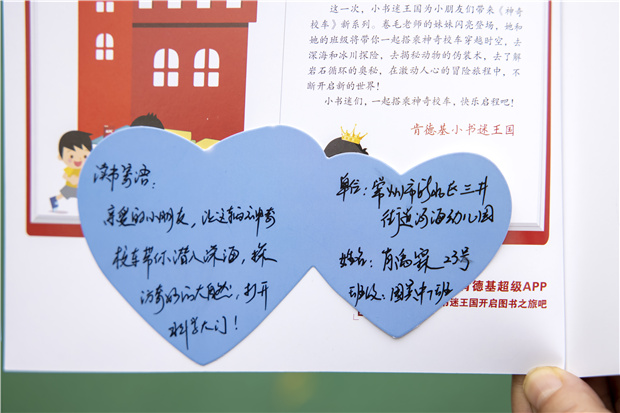 这一次，小书迷王国为小朋友们带来《神奇
校车》新系列。卷毛老师的妹妹闪亮登场，她和
她的班级将带你一起搭乘神奇校车穿越时空，去
深海和冰川探险，去揭秘动物的伪装术，去了解
岩石循环的奥秘，在激动人心的冒险旅程中，不
断开启新的世界！
小书迷们，一起搭乘神奇校车，快乐启程吧！
肯德基小书迷王国
读书寄语：
亲爱的小朋友，让这辆神奇
校车带你潜入深海，探
访奇妙的大自然，打开
科学大门！
单位：常州市新北区三井
街道河海幼儿园
姓名：肖 霖 23号
班级：国 中1班
肯德基超级APP
书迷王国开启图书之旅吧